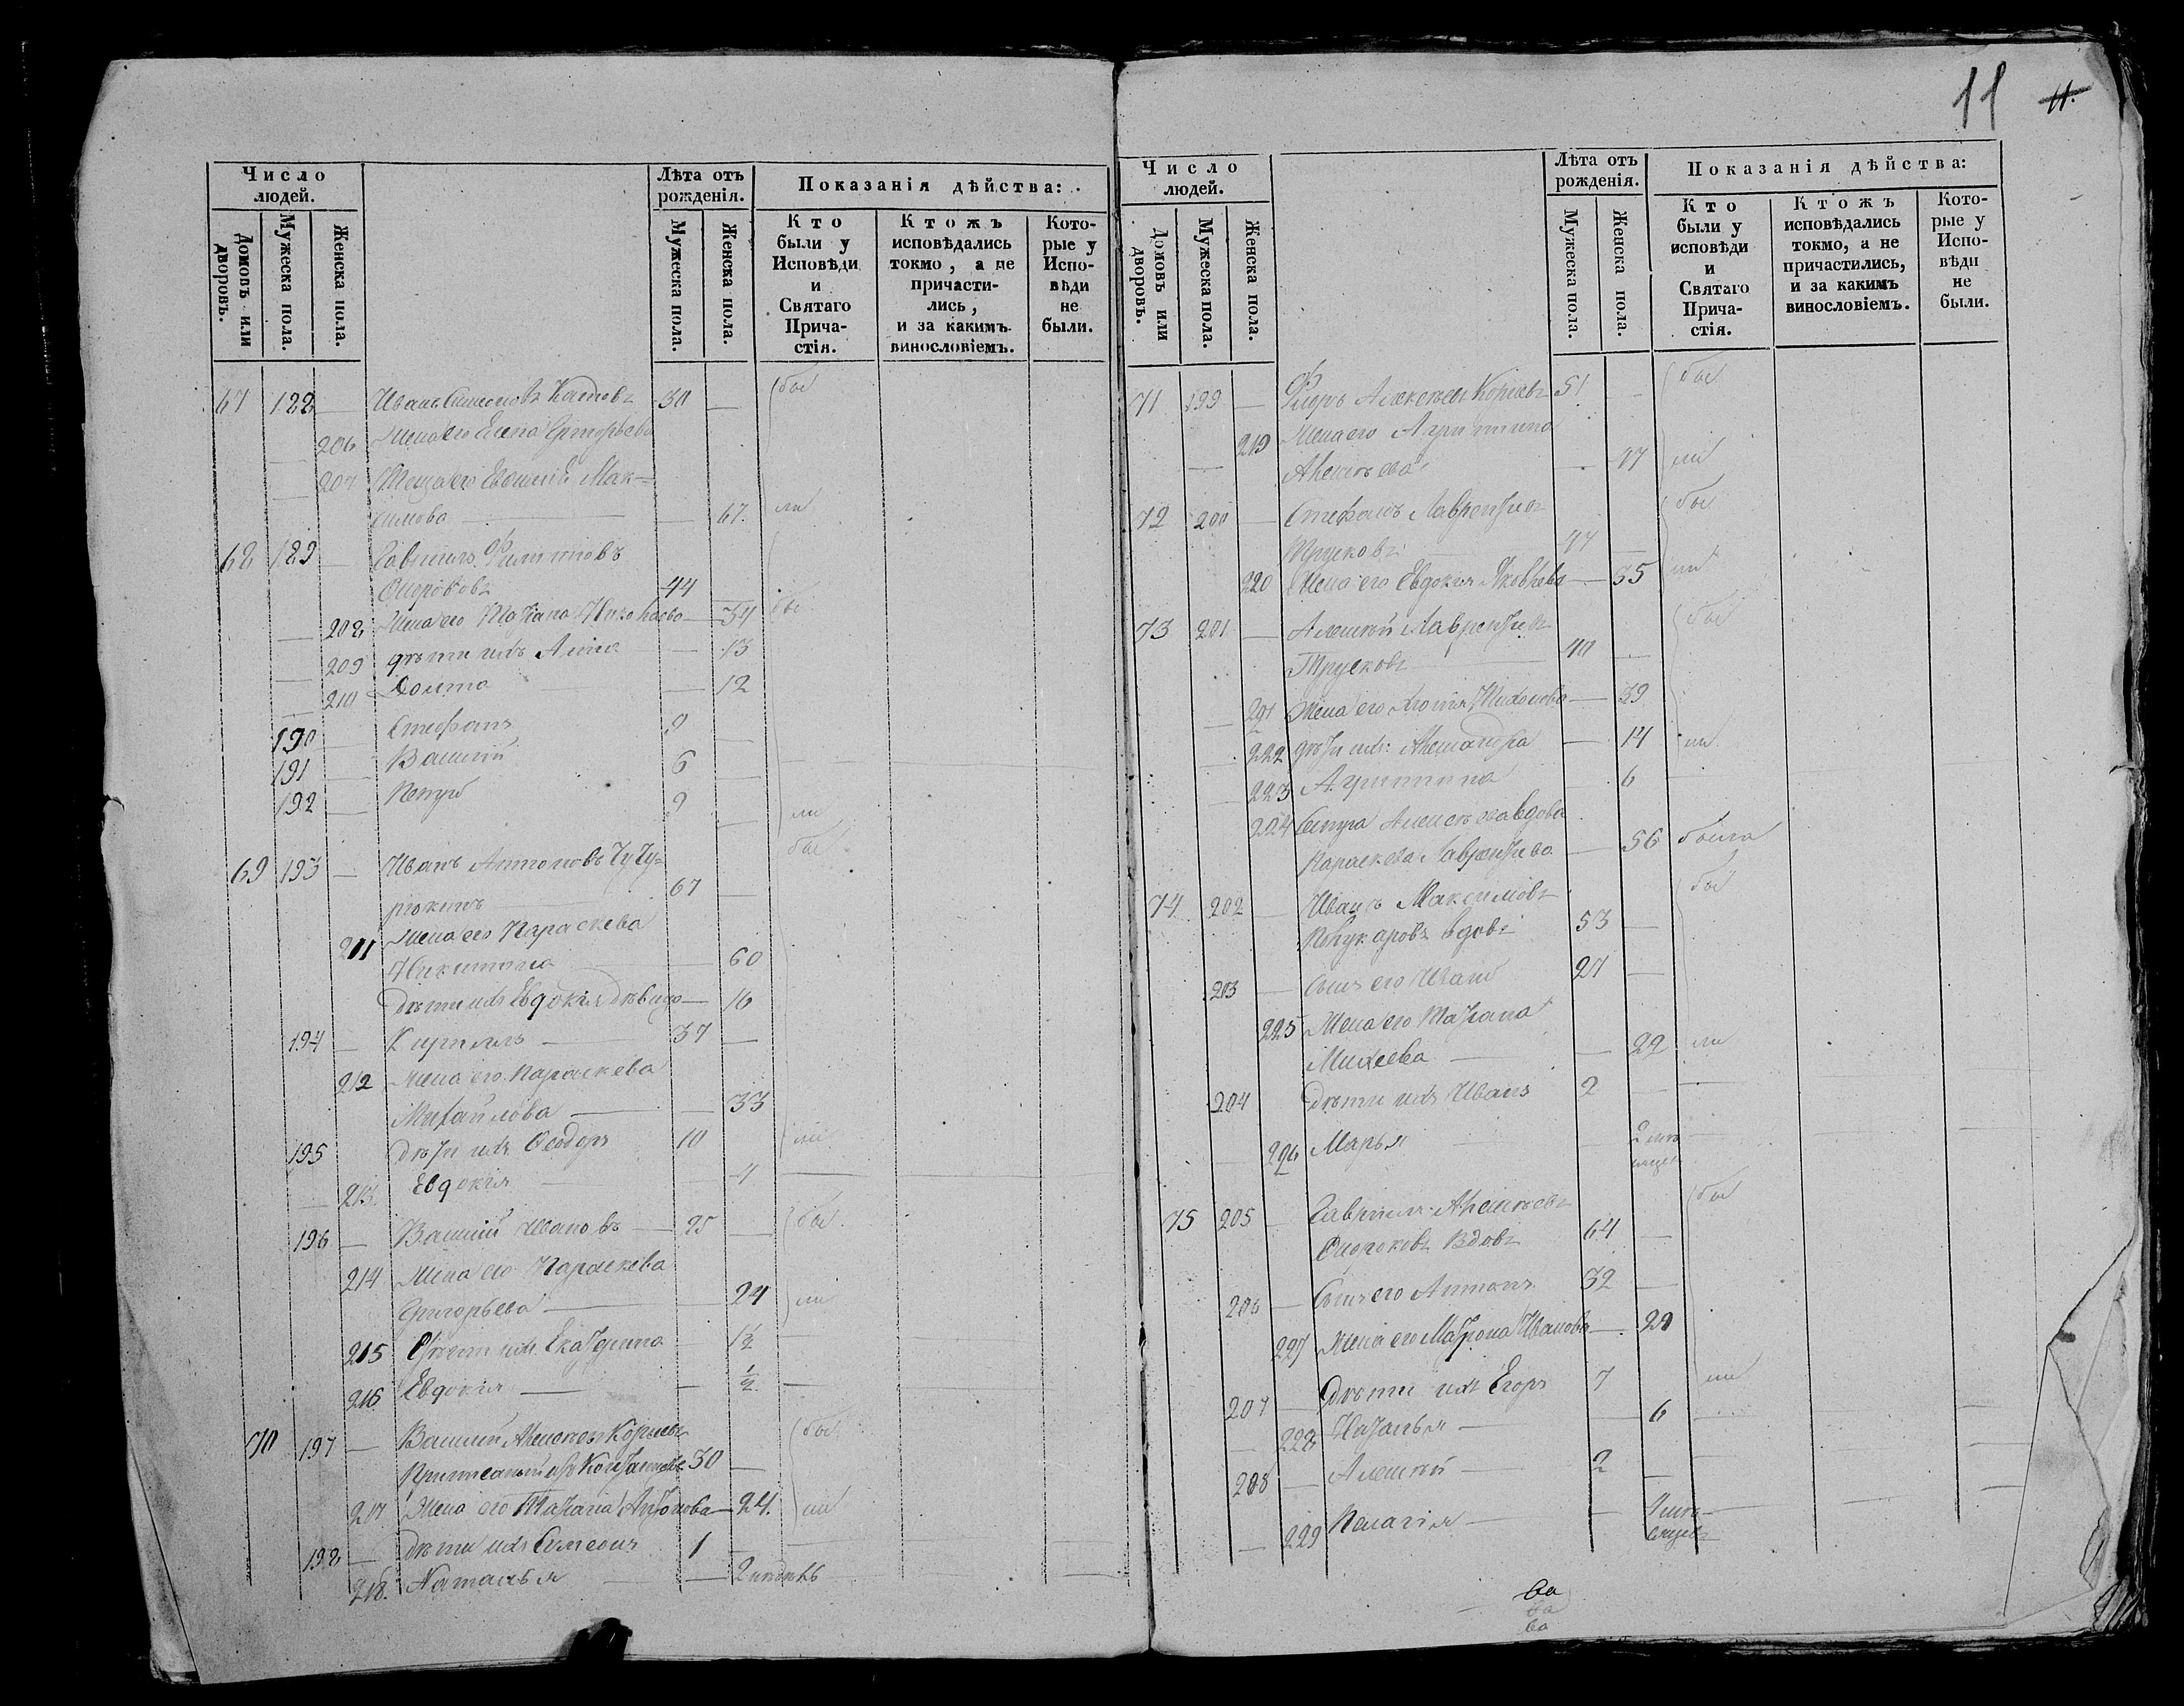 11 11.
Число людей.
Домовъ или дворовъ.
Мужеска пола.
Женска пола.
Лѣта отъ рожденія.
Мужеска пола.
Женска пола.
Показанія дѣйства:
Кто были у Исповѣди и Святаго Причастія.
Ктожъ исповѣдались токмо, а не причастились, и за какимъ винословіемъ.
Которые у Исповѣди не были.
67 188 — Иванъ Симеоновъ 30 — бы
206 Жена его Елена Григорьева
207 Теща его Евѳимія Мак-
симова — — 67. ли
68 189 — Гавріилъ Филипповъ
Сноровъ 44
208 Жена его Татіана Николаева — 34 бы
209 дѣти ихъ Анна — 13
210 — 12
190 — Стефанъ 9 —
191 — Василій 6 —
192 — Петръ 9 — ли
69 193 — Иванъ Антоновъ Чучу- бы
рюкинъ 67 —
211 Жена его Параскева
Никитина — 60
Дѣти ихъ Евдокія дѣвица — 16
194 — Кириллъ — 37 —
212 Жена его Параскева
Михайлова — — 33
195 Дѣти ихъ Ѳеодоръ 10 ли
213. Евдокія — 4
196 — Василій Ивановъ — 25 — бы
214 Жена его Параскева
Григорьева — — 24 ли
215 Дѣти ихъ Екатерина 1½
216 Евдокія — — ½
70 197 — Василій Алексѣевъ Корнѣевъ бы
30 —
217 Жена его Татіана Антонова — 24. ли
198 — Дѣти ихъ Симеонъ 1 —
218. Наталья — 2 недѣль
Число людей.
Домовъ или дворовъ.
Мужеска пола.
Женска пола.
Лѣта отъ рожденія.
Мужеска пола.
Женска пола.
Показанія дѣйства:
Кто были у исповѣди и Святаго Причастія.
Ктожъ исповѣдались токмо, а не причастились, и за какимъ винословіемъ.
Которые у Исповѣди не были.
71 199 — Флоръ Алексѣевъ Корнѣевъ 51 — бы
219 Жена его Агриппина
Алексѣева — 47 ли
72 200 — Стефанъ Лаврентіевъ бы
Трусковъ 47 —
220 Жена его Евдокія Яковлева — 35 ли
73 201 — Алексѣй Лаврентіевъ бы
Трусковъ — 40 —
221 Жена его Тихонова — 39
222 дѣти ихъ: Александра — 14 ли
223 Агриппина 6
224 Сестра Алексѣева вдова
Параскева Лаврентіева — 56 была
74 202 — Иванъ Максимовъ бы
вдовъ 53 —
203 — Сынъ его Иванъ 27 —
225 Жена его Татіана
Михеева — — 22 ли
204 Дѣти ихъ Иванъ 2 —
226 Марья — 2 мѣ-
сяцев
75 205 — Гавріилъ Алексѣевъ бы
Сноровъ Вдовъ 64 —
206 — Сынъ его Антонъ 32 —
227 Жена его Матрона Иванова — 29
207 — Дѣти ихъ Егоръ 7 ли
228 Наталья — — 6
208 — Алексѣй — 2 —
229 Пелагія — — мѣ-
сяцевъ
ва
ва
ва